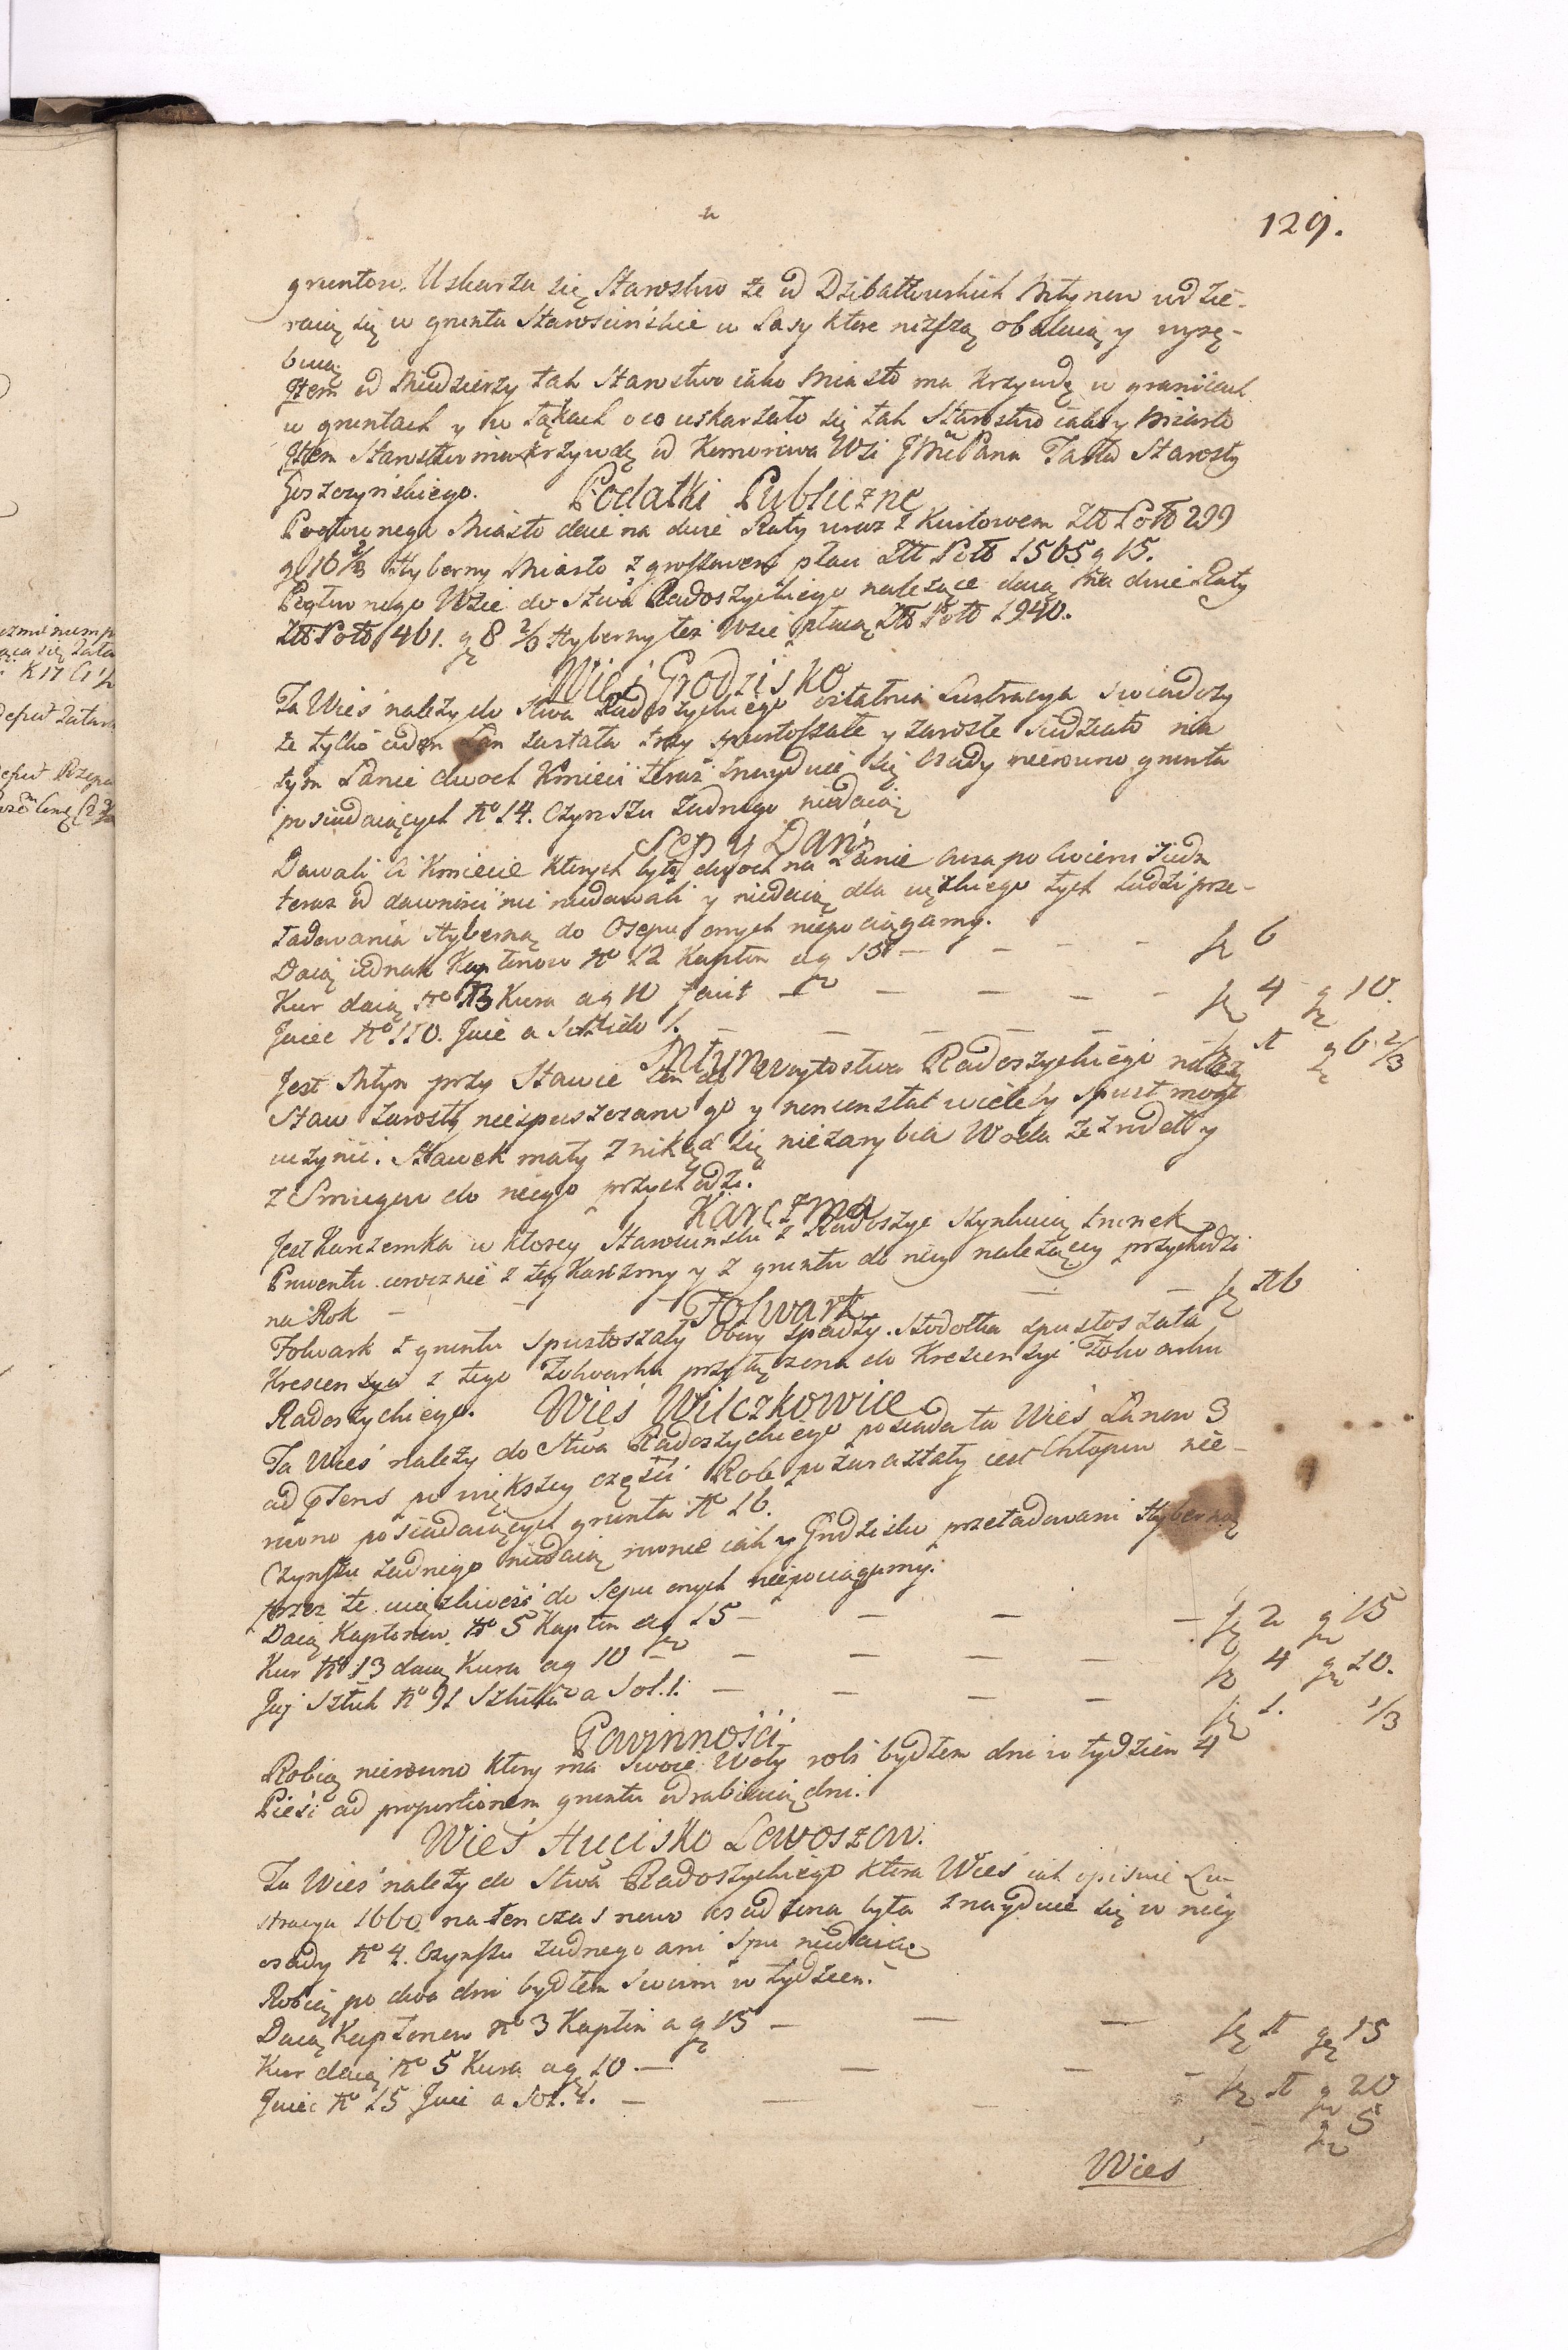 129.
gruntow. Uskarza się Starostwo że od Dzibałtowskich Młynow wdzie-
raią się w grunta Starościńskie w Lasy ktore niszczą obalaią y wyrę-
buią
Jtem od Miedzierzy tak Starostwo iako Miasto ma Krzywdę w granicach
w gruntach y w Łąkach o co uskarżało się tak Starostwo iako y Miasto
Jtem Starostwo ma krzywdę od Komorowa Wsi JMci Pana Tarła Starosty
Goszczyńskiego.
Podatki Publiczne
Pogłownego Miasto daie na dwie Raty wraz z Kwitowem Złł Poł 299
g 16 2/3 Hyberny Miasto z groszowem płaci Złł Poł 1565 g 15.
Pogłownego Wsie do Stwa Radoszyckiego należące daią na dwie Raty
Złł Poł 1461. g 8 2/3 Hyberny też Wsie płacą Złł Poł 1940.
Wieś Grodzisko
Ta Wieś należy do Stwa Radoszyckiego ostatnia Lustracya świadczy
że tylko ieden Łan zastała trzy spustoszałe y zarosłe siedziało na
tym Łanie dwoch Kmieci teraz znayduie się Osady nierowno grunta
posiadaiących No 14. Czynszu żadnego niedaią
Sep y Dań
Dawali Ci Kmiecie ktorych było dwoch na Łanie Owsa po Cwierci Siedm
teraz od dawności nie niedawali y niedaią dla ciężkiego tych Ludzi prze-
ładowania Hyberną do Osepu onych niepociągamy.
Daią iednak Kapłonow No 12 Kapłon a g 15 — — — — fl 6
Kur daią No 13 Kura a g 10 facit — — — — fl 4 g 10.
Jaiec No 110. Jaie a Szelidze 1. — — — — fl 1 g 6 2/3
Młyn
Jest Młyn przy Stawie ten do Woytostwa Radoszyckiego należy
Staw zarosły niespuszczano go y nonconstat wieleby spust mogł
uczynić. Stawek mały z nikąd się niezarybia Woda ze zrodeł y
z Smugow do niego przychodzi.
Karczma
Jest Karczemka w ktorey Starościński z Radoszyc szynkuią trunek
Prowentu corocznie z tey Karczmy y z gruntu do niey należącey przychodzi
na Rok — — — — — fl 16
Folwark
Folwark z gruntu spustoszały Obory spadły. Stodołka spustoszała
Krescencya z tego Folwarku przyłączona do Krescencyi Folwarku
Radoszyckiego.
Wieś Wilczkowice
Ta Wieś należy do Stwa Radoszyckiego posiada ta Wieś Łanow 3
ad psens po większey części Role pozarastały iest Chłopow nie-
rowno posiadaiących grunta No 16.
Czynszu żadnego niedaią rownie iak y Grodzisko przeładowani Hyberną
przez te ciężkości do Sepu onych niepociągamy.
Daią Kapłonow No 5 Kapłon a g 15 — — — — fl 2 g 15
Kur No 13 daią Kura a g 10 — — — — — fl 4 g 10.
Jay Sztuk No 91 Sztuka a Szel. 1. — — — — fl 1. 1/3
Powinności
Robią nierowno ktory ma swoie Woły robi bydłem dni w tydzień 4
Piesi ad proportionem gruntu odrabiaią dni.
Wieś Hucisko Lewoszow.
Ta Wieś należy do Stwa Radoszyckiego ktora Wieś iak opisuie Lu-
stracya 1660 na ten czas nowo osadzona była znayduie się w niey
osady No 4. Czynszu żadnego ani Spu niedaią
Robią po dwa dni bydłem swoim w tydzień.
Daią Kapłonow No 3 Kapłon a g 15 — — — fl 1 g 15
Kur daią No 5 Kura a g 10 — — — — fl 1 g 20
Jaiec No 15 Jaie a Szel. 1. — — — — g 5
Wieś